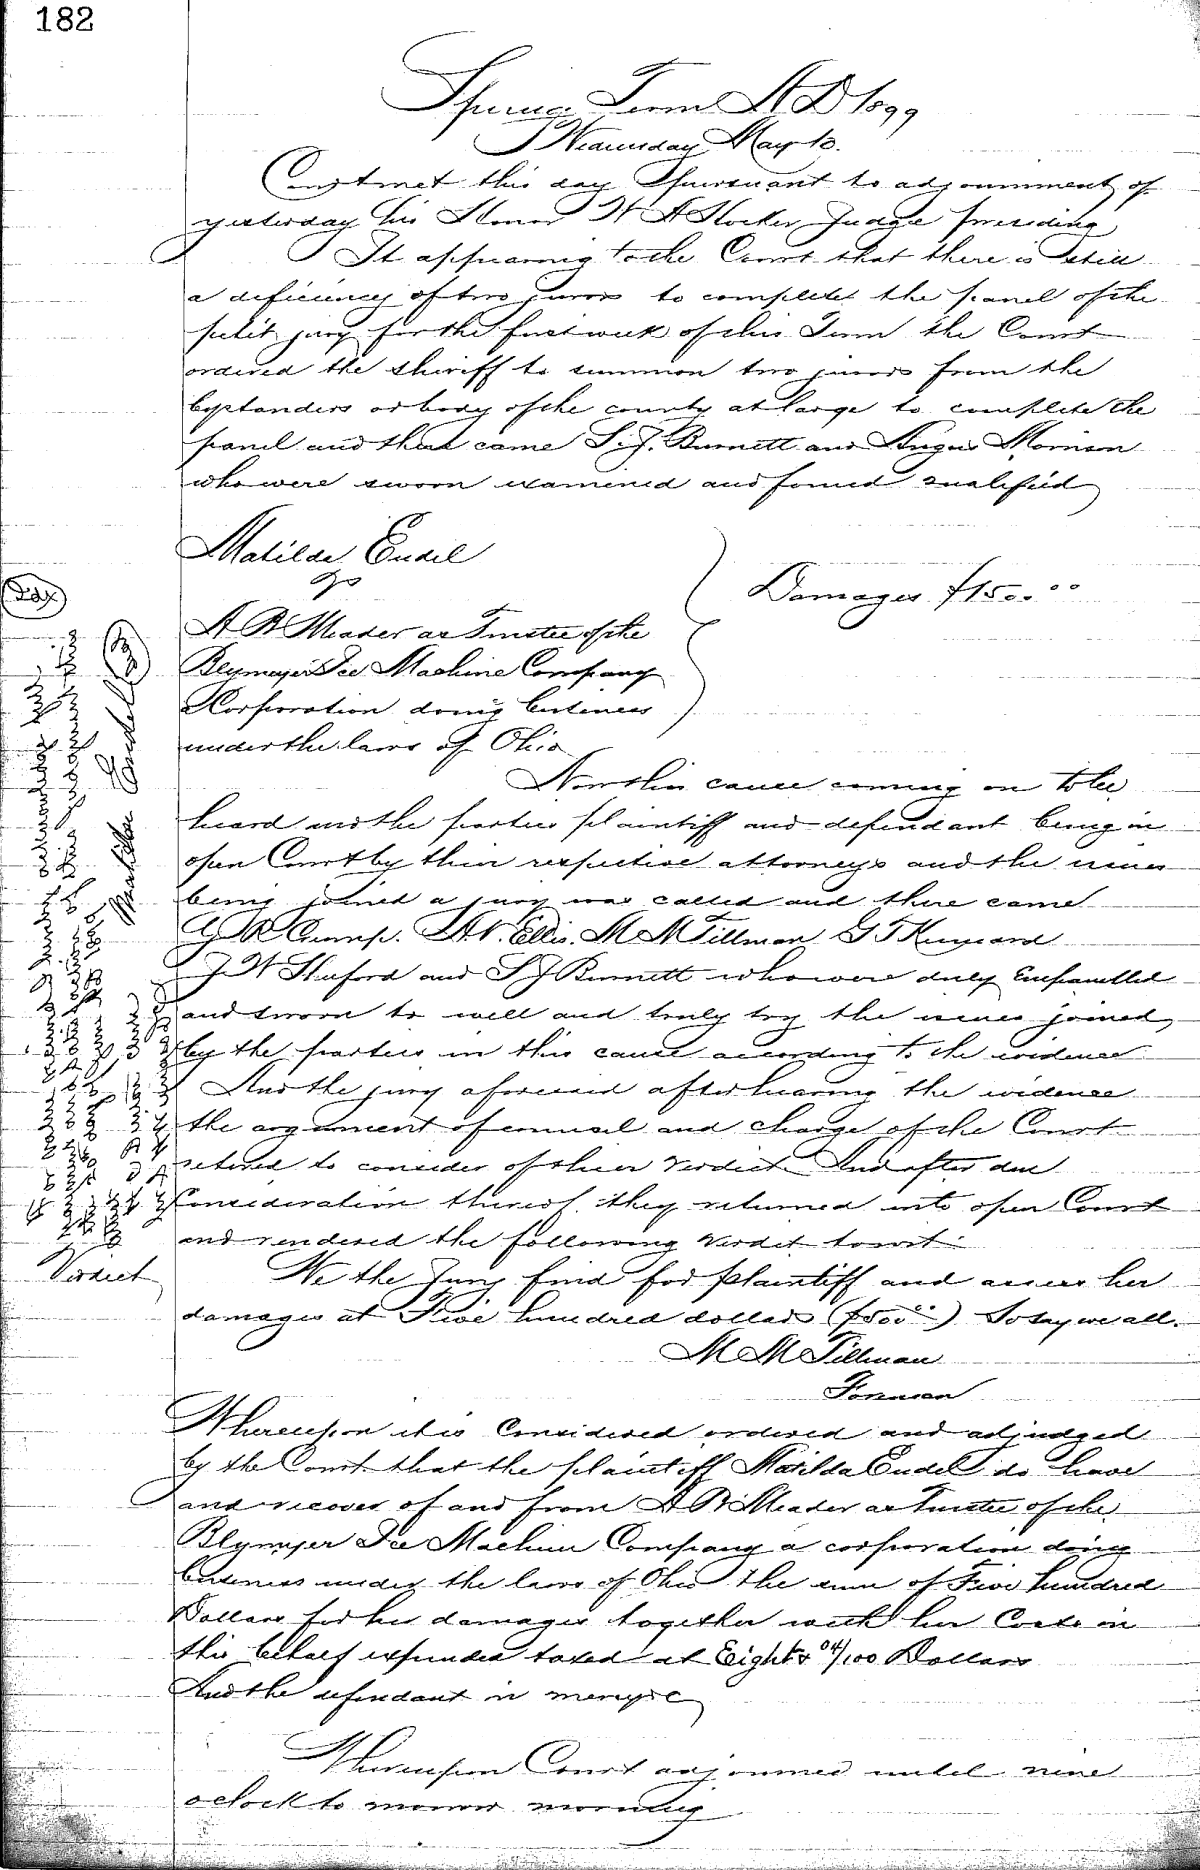 182
Spring Term A D 1899
Wednesday May 10.
Court met this day pursuant to adjournment of
yesterday his Honor W A Hocker Judge presiding
It appearing to the Court that there is still
a deficiency of two jurors to complete the panel of the
petit jury for the first week of this Term the Court
ordered the sheriff to summon two jurors from the
bystanders or body of the county at large to complete the
panel and there came S. J. Burnett and Angus Morrison
who were sworn examined and found qualified
Matilda Endel
vs
Damages $1500.00
A B Meader as Trustee of the
Blymyer Ice Machine Company
A Corporation doing business
under the laws of Ohio
Now this cause coming on to be
heard and the parties plaintiff and defendant being in
open Court by their respective attorneys and the issues
being joined a jury was called and there came
G R Crump. M M Tillman
J W Huford and S J Burnett who were duly Empanelled
and sworn to well and truly try the issues joined
by the parties in this cause according to the evidence
And the jury aforesaid after hearing the evidence
the argument of counsel and charge of the Court
retired to consider of their verdict And after due
Consideration thereof they returned into open Court
and rendered the following Verdict towit:
Verdict
We the Jury find for plaintiff and assess her
damages at Five hundred dollars ($500.00) So say we all.
M M Tillman
Foreman
Whereupon it is Considered ordered and adjudged
by the Court that the plaintiff Matilda Endel do have
and recover of and from A B Meader as Trustee of the
Blymyer Ice Machine Company a corporation doing
business under the laws of Ohio the sum of Five hundred
Dollars for her damages together with her Costs in
this behalf expended taxed at Eight & 04/100 Dollars
And the defendant in mercy &c
Whereupon Court adjourned until nine
oclock to morrow morning
Matilda Endel